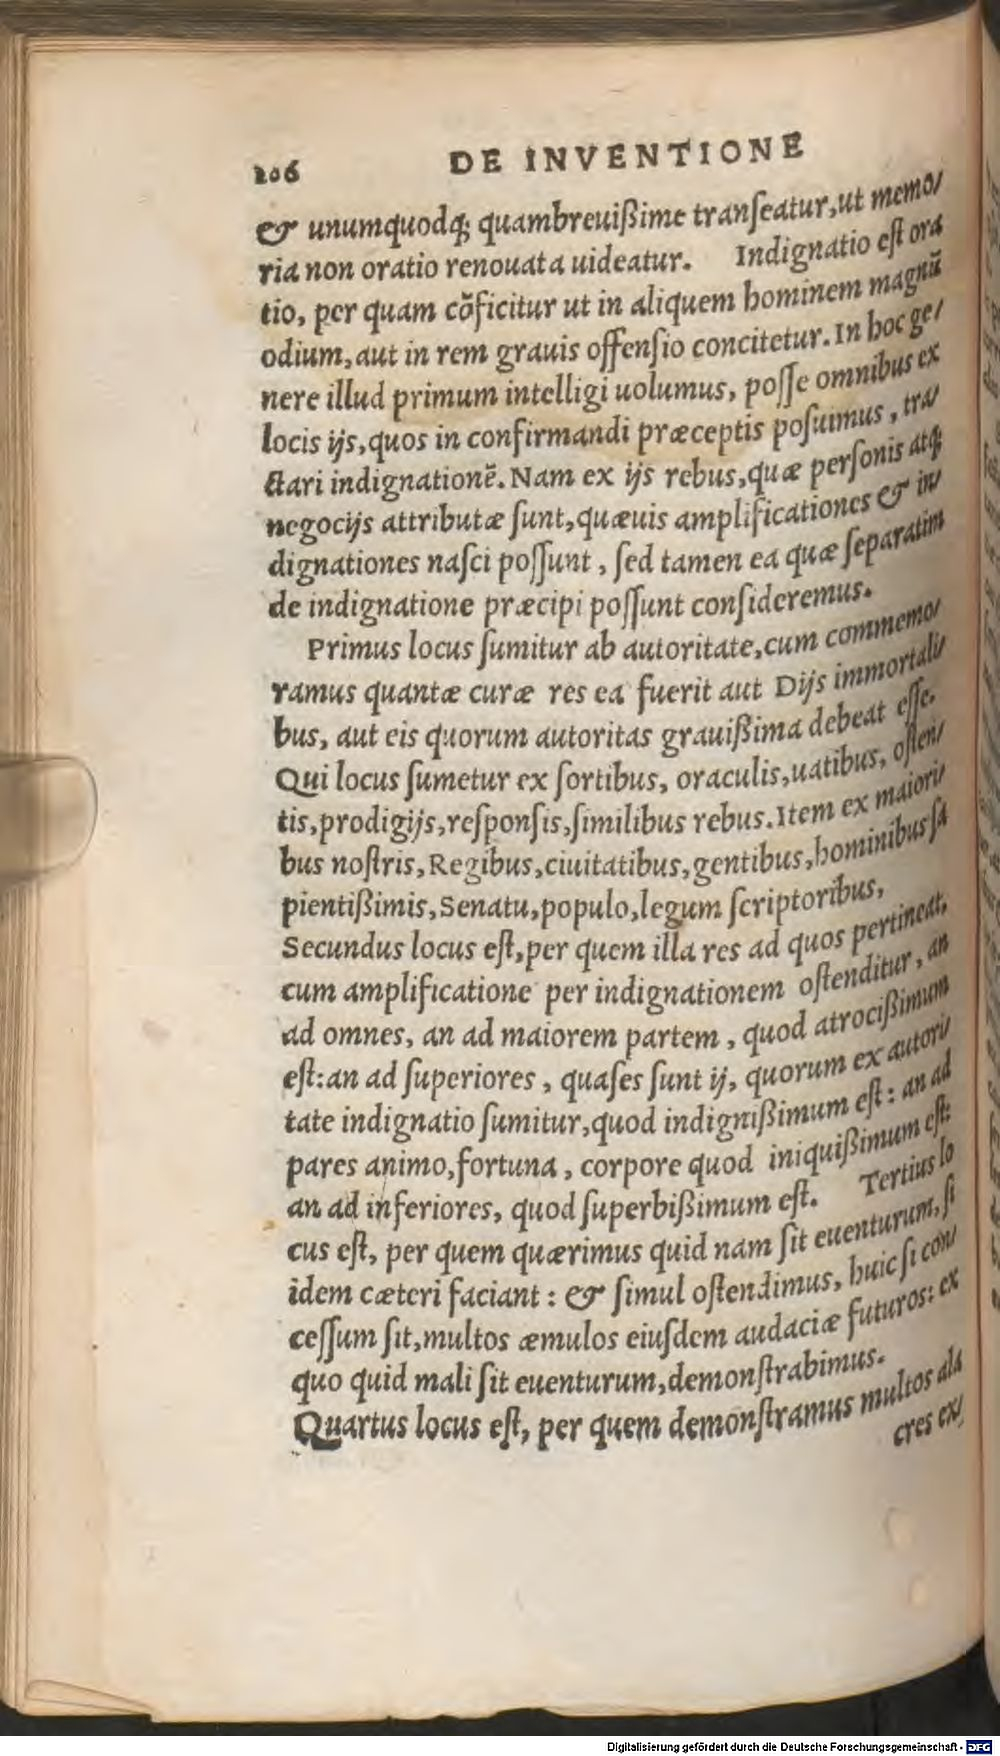 106 DE INVENTIONE
& unumquodq; quambreuißime tranſeatur,ut memo/
ria non oratio renouata uideatur. Indignatio eſt ora
tio, per quam cõficitur ut in aliquem hominem magnũ
odium,aut in rem grauis offenſio concitetur. In hoc ge/
nere illud primum intelligi uolumus, poſſe omnibus ex
locis ijs,quos in confirmandi præceptis poſuimus, tra/
ctari indignationẽ. Nam ex ijs rebus,quæ perſonis atq;
negocijs attributæ ſunt,quæuis amplificationes & in/
dignationes naſci poſſunt, ſed tamen ea quæ ſeparatim
de indignatione præcipi poſſunt conſideremus.
Primus locus ſumitur ab autoritate,cum commemo/
ramus quantæ curæ res ea fuerit aut Dijs immortali/
bus, aut eis quorum autoritas grauißima debeat eſſe.
Qui locus ſumetur ex ſortibus, oraculis,uatibus, oſten/
tis,prodigijs,reſponſis,ſimilibus rebus. Item ex maiori/
bus noſtris, Regibus,ciuitatibus,gentibus,hominibus ſa
pientißimis, Senatu,populo,legum ſcriptoribus,
Secundus locus eſt,per quem illa res ad quos pertineat,
cum amplificatione per indignationem oſtenditur, an
ad omnes, an ad maiorem partem, quod atrocißimum
eſt:an ad ſuperiores, quaſes ſunt ij, quorum ex autori/
tate indignatio ſumitur,quod indignißimum eſt: an ad
pares animo,fortuna, corpore quod iniquißimum eſt:
an ad inferiores, quod ſuperbißimum eſt. Tertius lo
cus eſt, per quem quærimus quid nam ſit euenturum, ſi
idem cæteri faciant: & ſimul oſtendimus, huic ſi con/
ceſſum ſit,multos æmulos eiuſdem audaciæ futuros: ex
quo quid mali ſit euenturum,demonſtrabimus.
Quartus locus eſt, per quem demonſtramus multos ala
cres ex/
Digitalisierung gefördert durch die Deutsche Forschungsgemeinschaft - DFG